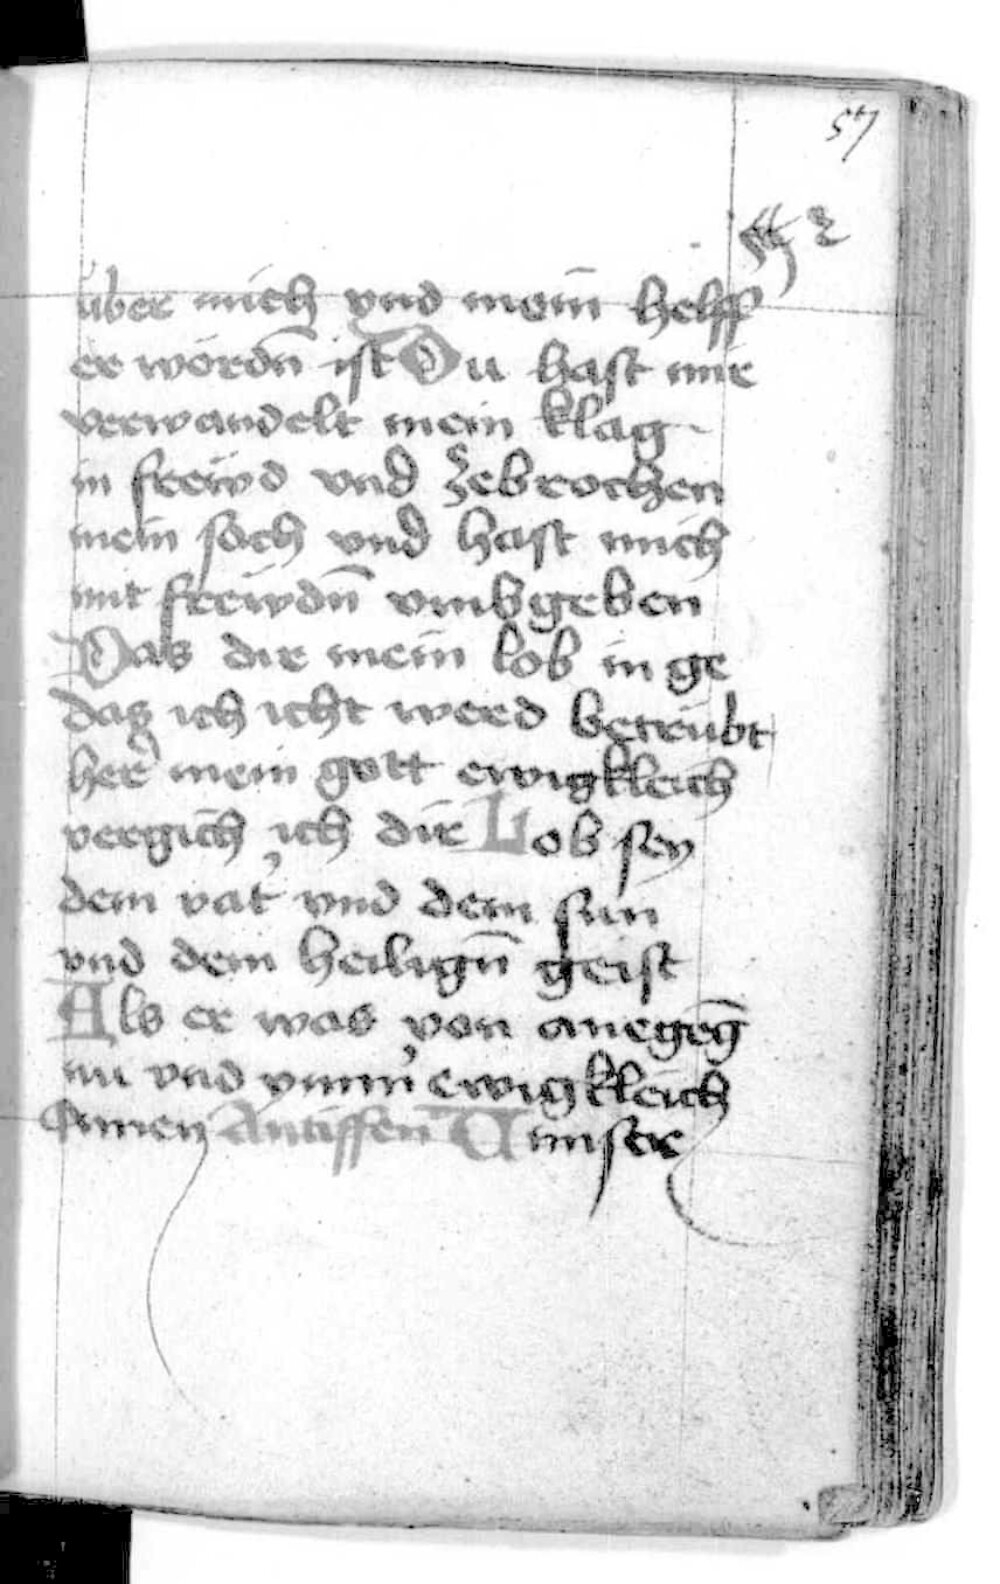 57
über mich vnd mein helff
er wordn̄ ist Du hast mir
verwandelt mein klag
in frewd vnd zebrochen
mein sach vnd hast mich
mit frewdn̄ vmbgeben
Das dir mein lob in ge
daz ich icht werd betrubt
her mein gott ewigkleich
vergich ich dir Lob sey
dem vat' vnd dem sun
vnd dem heilign̄ geist
Als er was von anegeḡ
nu vnd ymm' ewigkleich
Amen Antiffen A